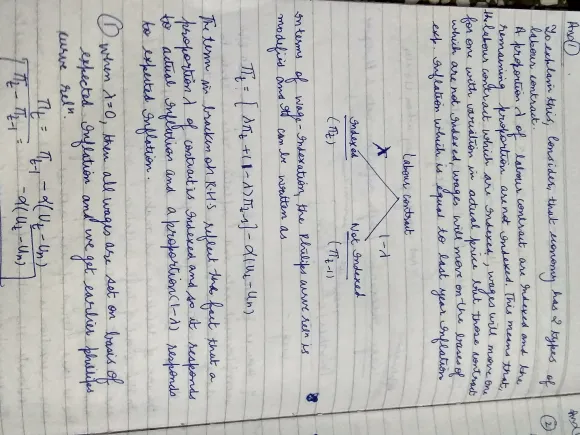 Ans 1).
To explain this, consider, that economy has 2 types of
labour contract.
A proportion λ of labour contract are indexed and the
remaining proportion are not indexed. This means that,
the labour contract which are indexed, wages will move one
for one with variation in actual price but those contract
which are not indexed, wages will move on the bases of
exp. inflation which is equal to last year inflation
labour contract
λ
1-λ
Indexed
Not Indexed
(πt)
(πt-1)
In terms of wage-indexation, the Philips curve relⁿ is
modified and it can be written as
πt = [λπt + (1-λ)πt-1] - α(ut - un)
The term in bracket on RHS reflect the fact that a
proportion λ of contract is indexed and so it responds
to actual inflation and a proportion (1-λ) responds
to expected inflation.
① when λ=0, then all wages are set on basis of
expected inflation and we get earlier philips
curve relⁿ.
πt = πt-1 - α(ut - un)
πt - πt-1 = -α(ut - un)
②